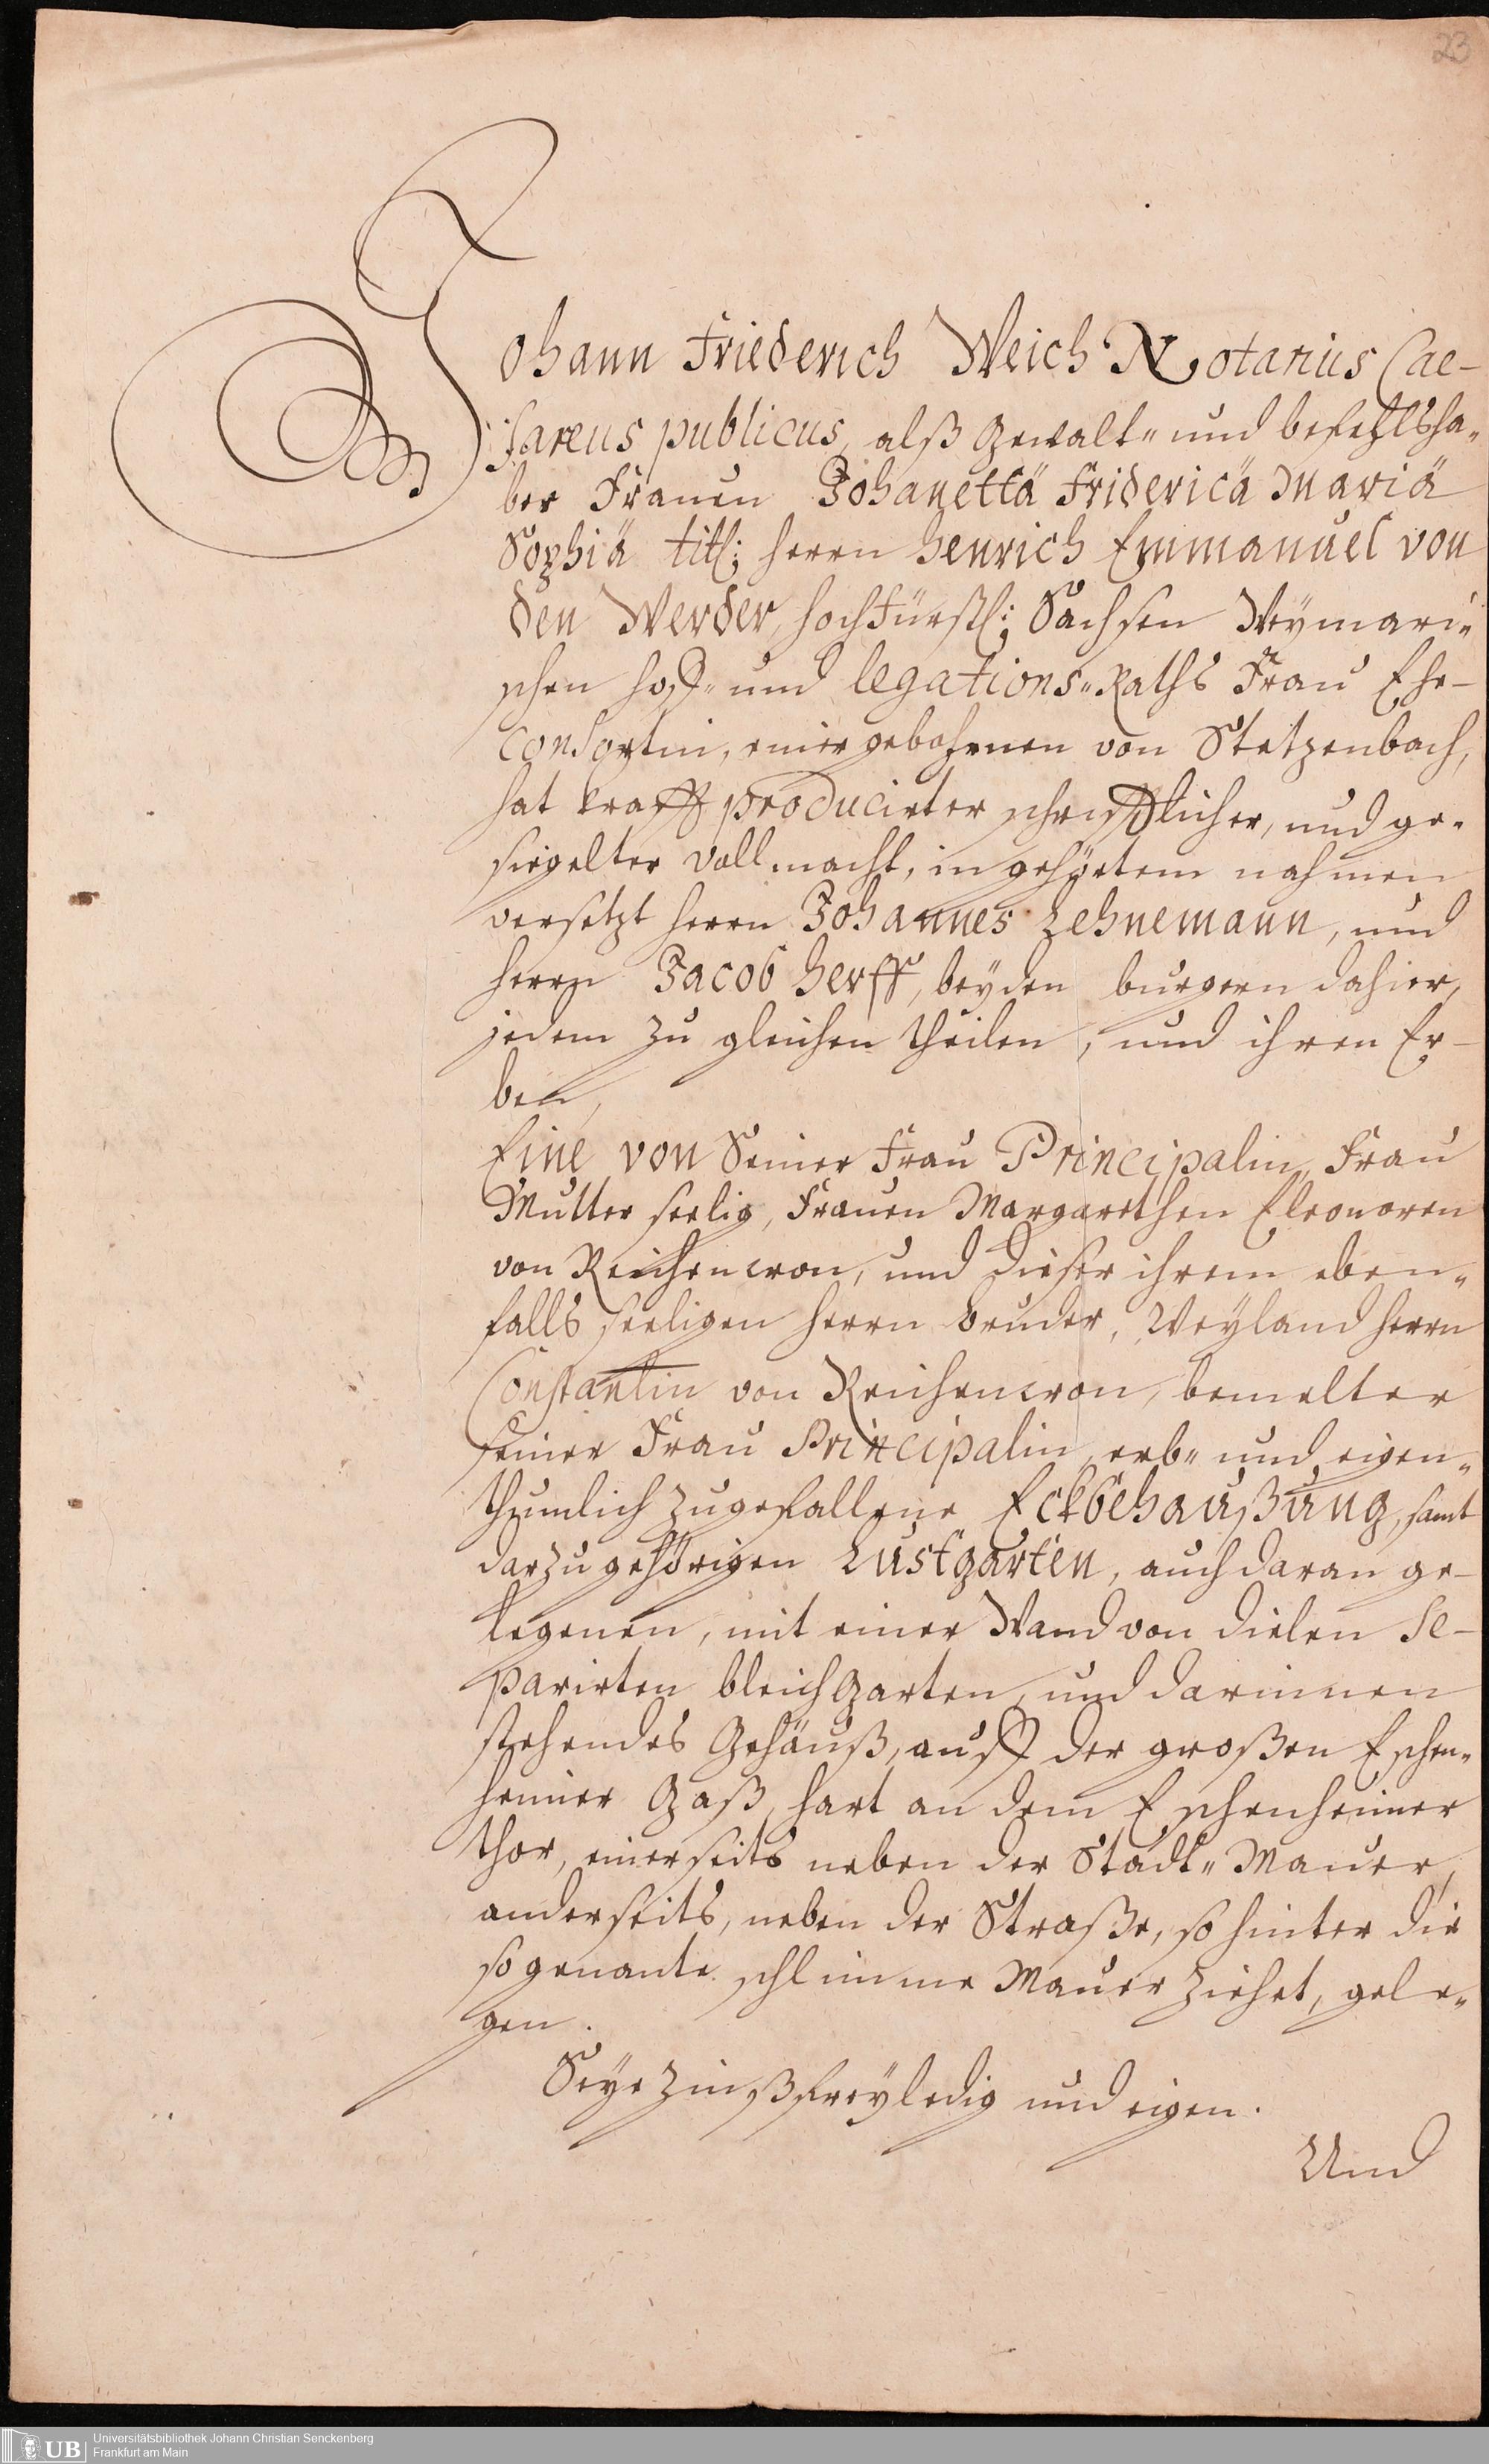 23
Johann Friederich Weich Notarius Cae-
sareus publicus, alß Gewalt- und befehlsha-
ber Frauen Johanettä Friderică Mariä
Sophiä titl: herrn Henrich Emmanuel von
den Werder, hochfürstl: Sachsen Weymari-
schen hoff- und legations-Raths Frau Ehe-
Consortin, einer gebohrnen von Stetzenbach,
hat krafft producirter schrifftlicher, und ge-
siegelter Vollmacht, in gehörtem nahmen
versetzt herrn Johannes Zehnemann, und
herrn Jacob Herff, beyden burgern dahier,
jedem zu gleichen theilen, und ihren Er-
ben,
Eine von Seiner Frau Principalin, Frau
Mutter seelig, Frauen Margarethen Eleonoren
von Reichencron, und dieser ihrem eben-
falls seeligen herrn bruder, Weyland herrn
Constantin von Reichencron, bemelter
seiner Frau Principalin, erb- und eigen-
thumlich zugefallene Eckbehaußung, samt
darzu gehörigen Lustgarten, auch daran ge-
legenen, mit einer Wand von dielen se-
parirten bleichgarten, und darinnen
stehendes Gehäuß, auff der großen Eschen-
heimer Gaß, hart an dem Eschenheimer
thor, einerseits neben der Stadt-Mauer,
anderseits, neben der Straße, so hinter die
so genante schlimme Mauer ziehet, gele-
gen.
Seye zinßfrey ledig und eigen.
Und
UB
Universitätsbibliothek Johann Christian Senckenberg
Frankfurt am Main